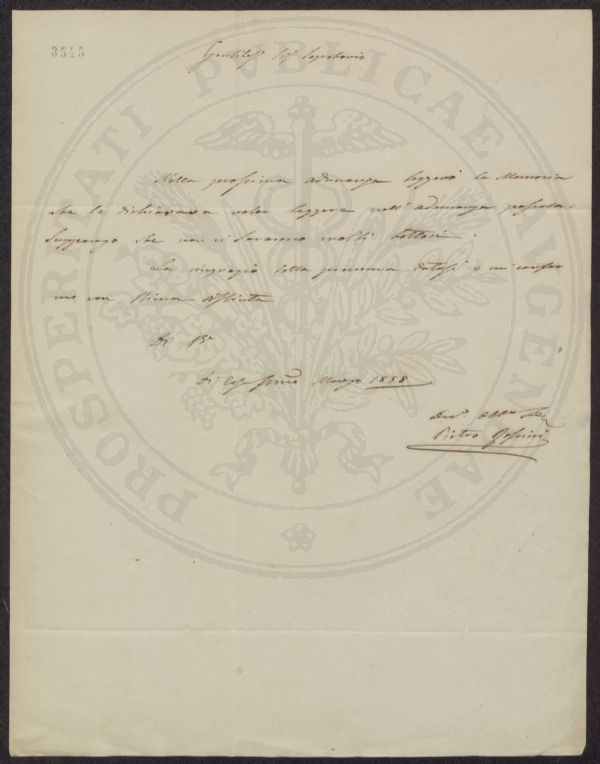 3545
Gentiles.º Sig.
Nella prossima adunanza leggerò la Memoria
che le dichiarava voler leggere nell'adunanza passata.
Suppongo che non ci saranno molti Lettori.
La ringrazio della premura datasi e mi confer
mo con Stima distinta
Di
Di Casa Marzo 1858
Pietro
PROSPERITATI PUBLICAE AUGENDAE